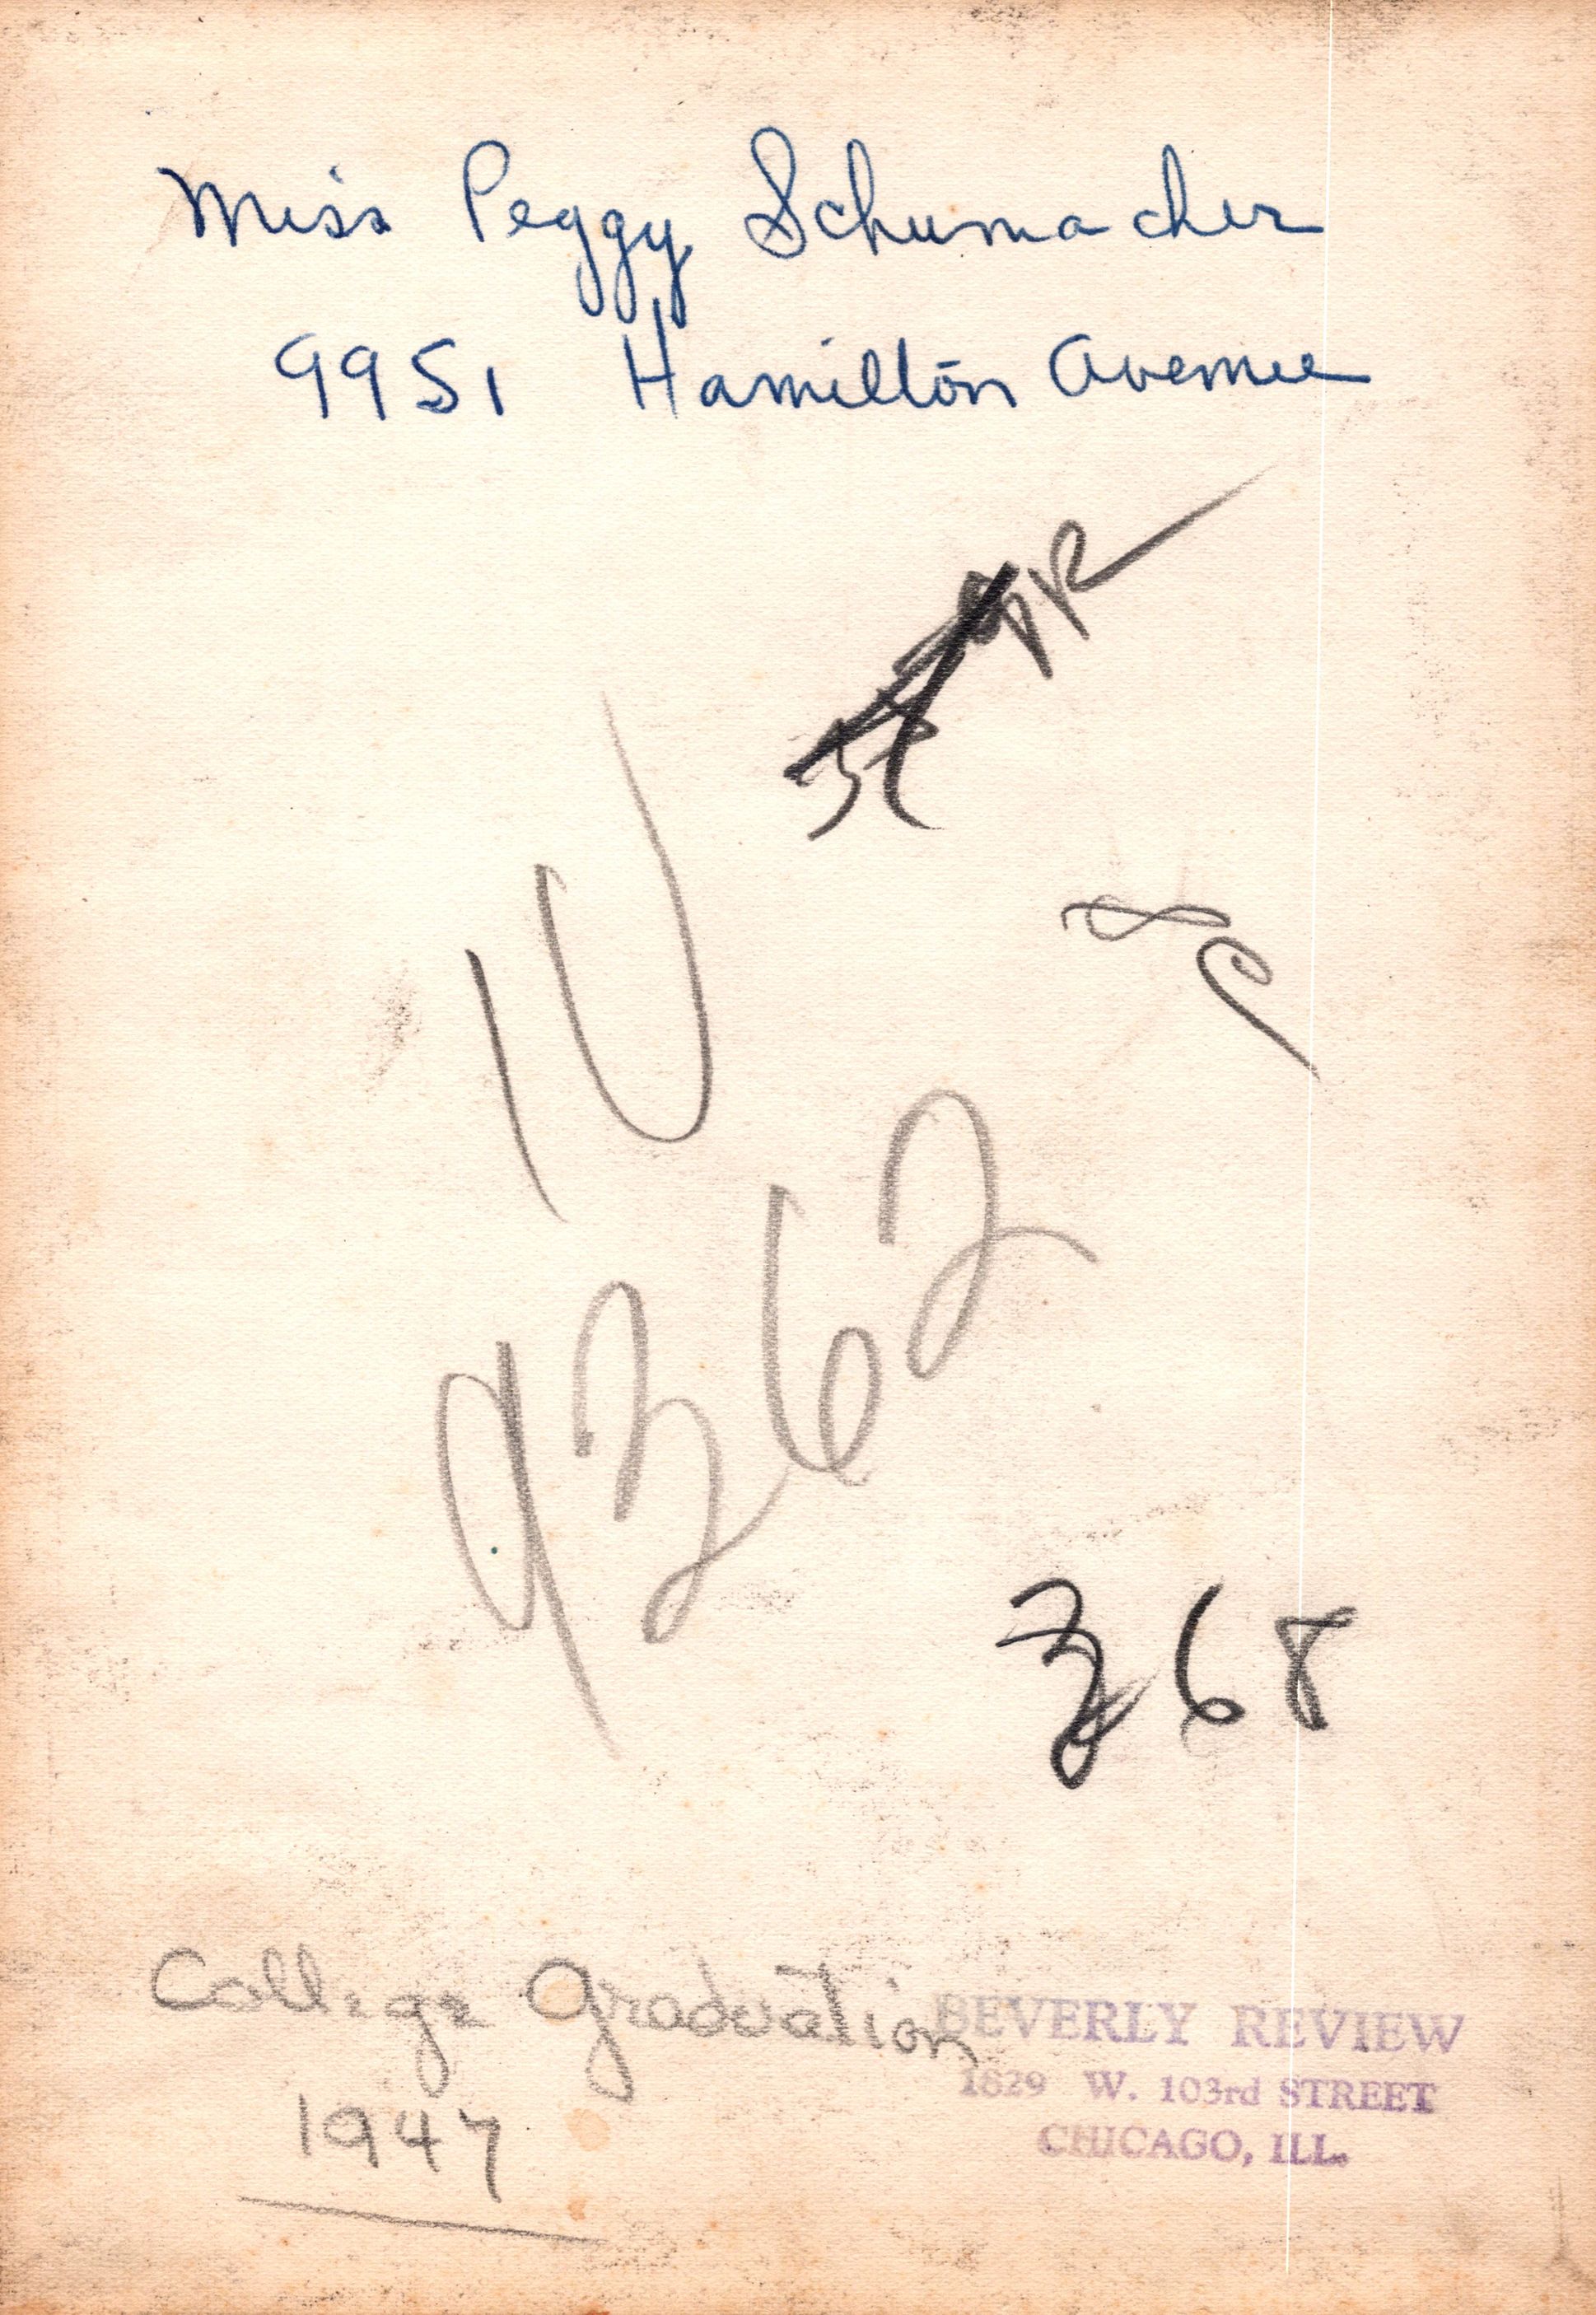 Miss Peggy Schumacher
9951 Hamilton Avenue
9362
368
College Graduation
1947
BEVERLY REVIEW
1829 W. 103rd STREET
CHICAGO, ILL.